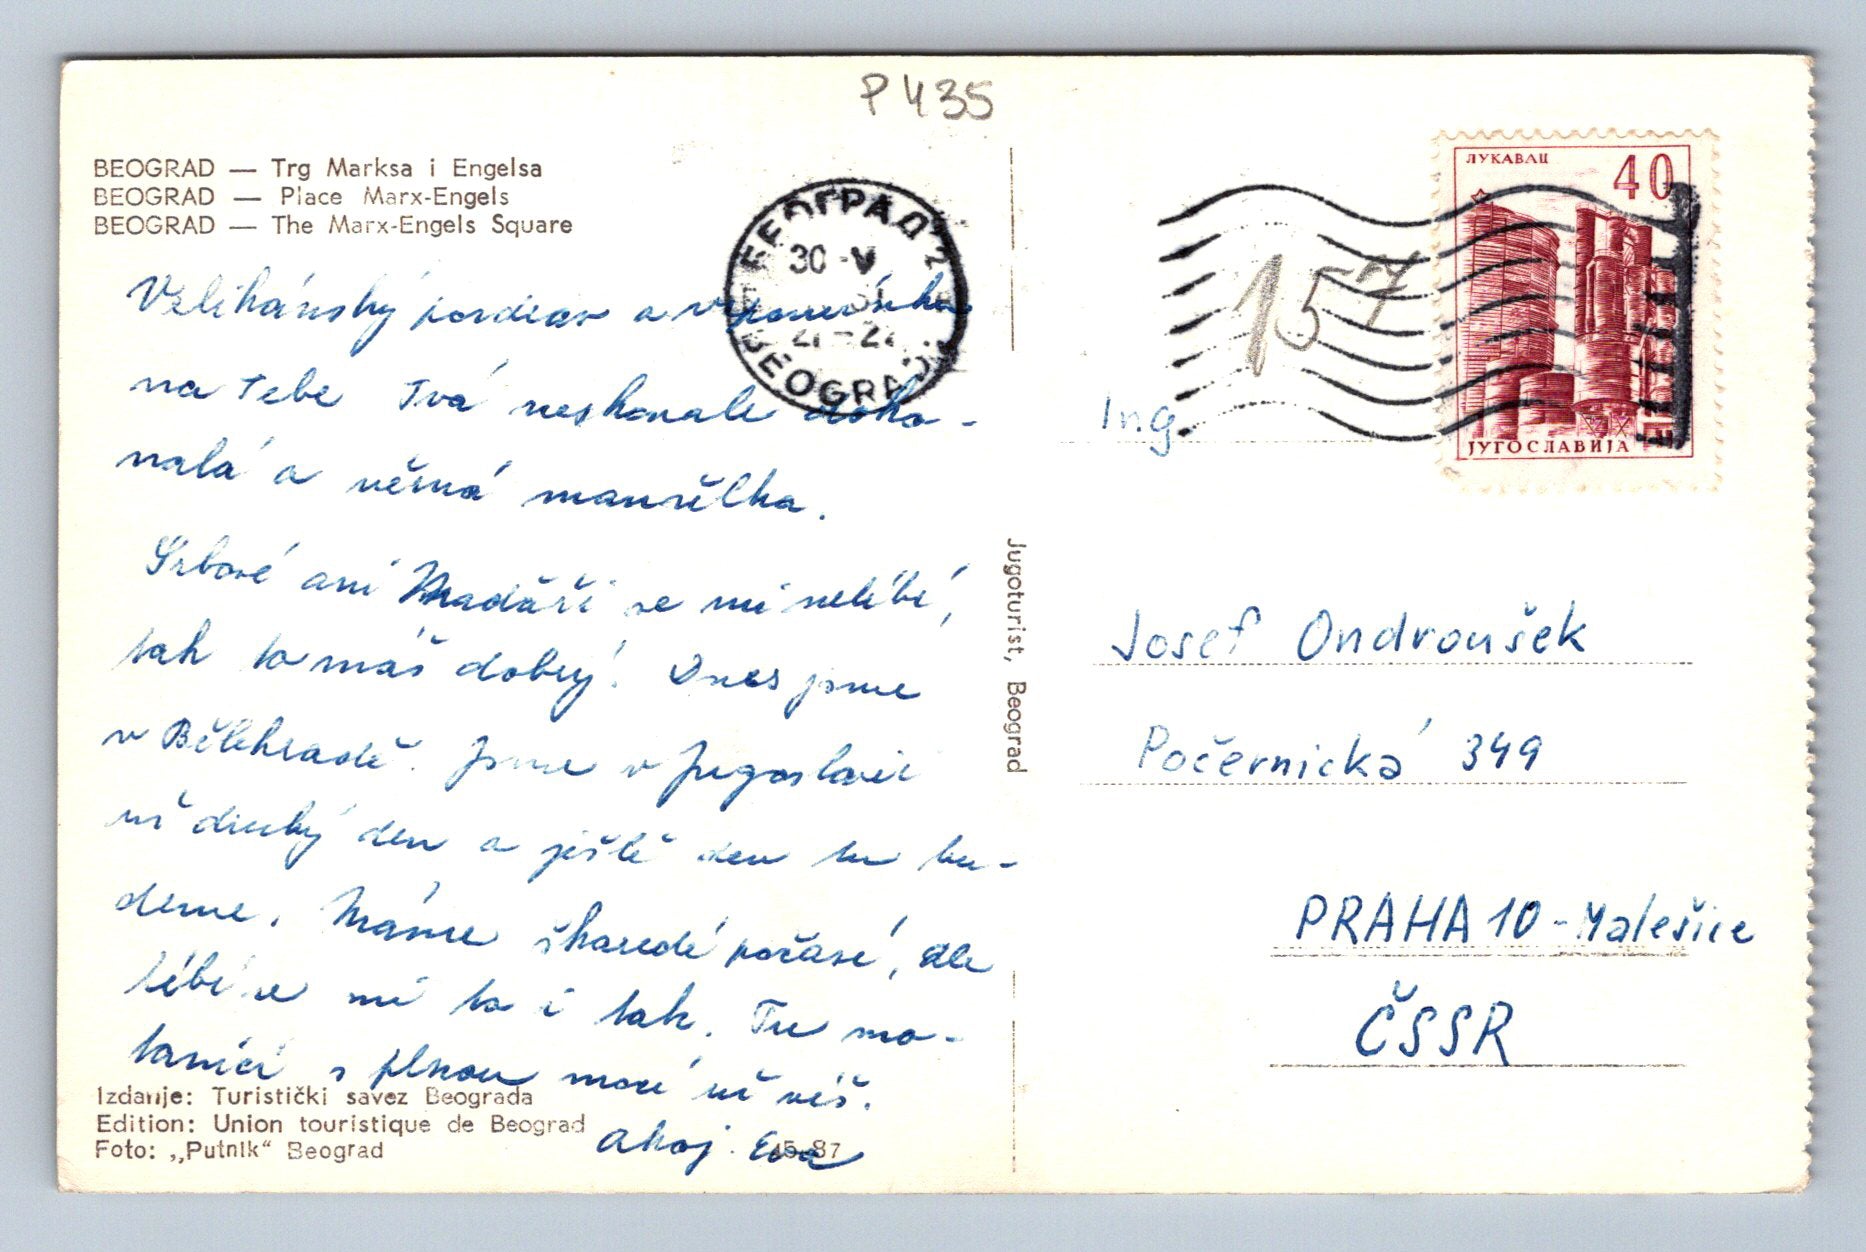 P 435
BEOGRAD — Trg Marksa i Engelsa
BEOGRAD — Place Marx-Engels
BEOGRAD — The Marx-Engels Square
БЕОГРАД 2
30 -V
21-22
BEOGRAD
Velikánský pozdrav a vzpomínka
na Tebe Tvá neskonale doko-
nalá a věrná manželka.
Srbové ani Maďaři se mi nelíbí,
tak to máš dobrý! Dnes jsme
v Bělehradě. Jsme v Jugoslavii
už druhý den a ještě den tu bu-
deme. Máme škaredé počasí, ale
líbí se mi to i tak. Tu mo-
s plnou mocí už víš.
Ahoj Eva
Izdanje: Turistički savez Beograda
Edition: Union touristique de Beograd
Foto: „Putnik“ Beograd
45-87
Jugoturist, Beograd
ЛУКАВАЦ
40
ЈУГОСЛАВИЈА
157
Ing.
Josef Ondroušek
Počernická 349
PRAHA 10 - Malešice
ČSSR